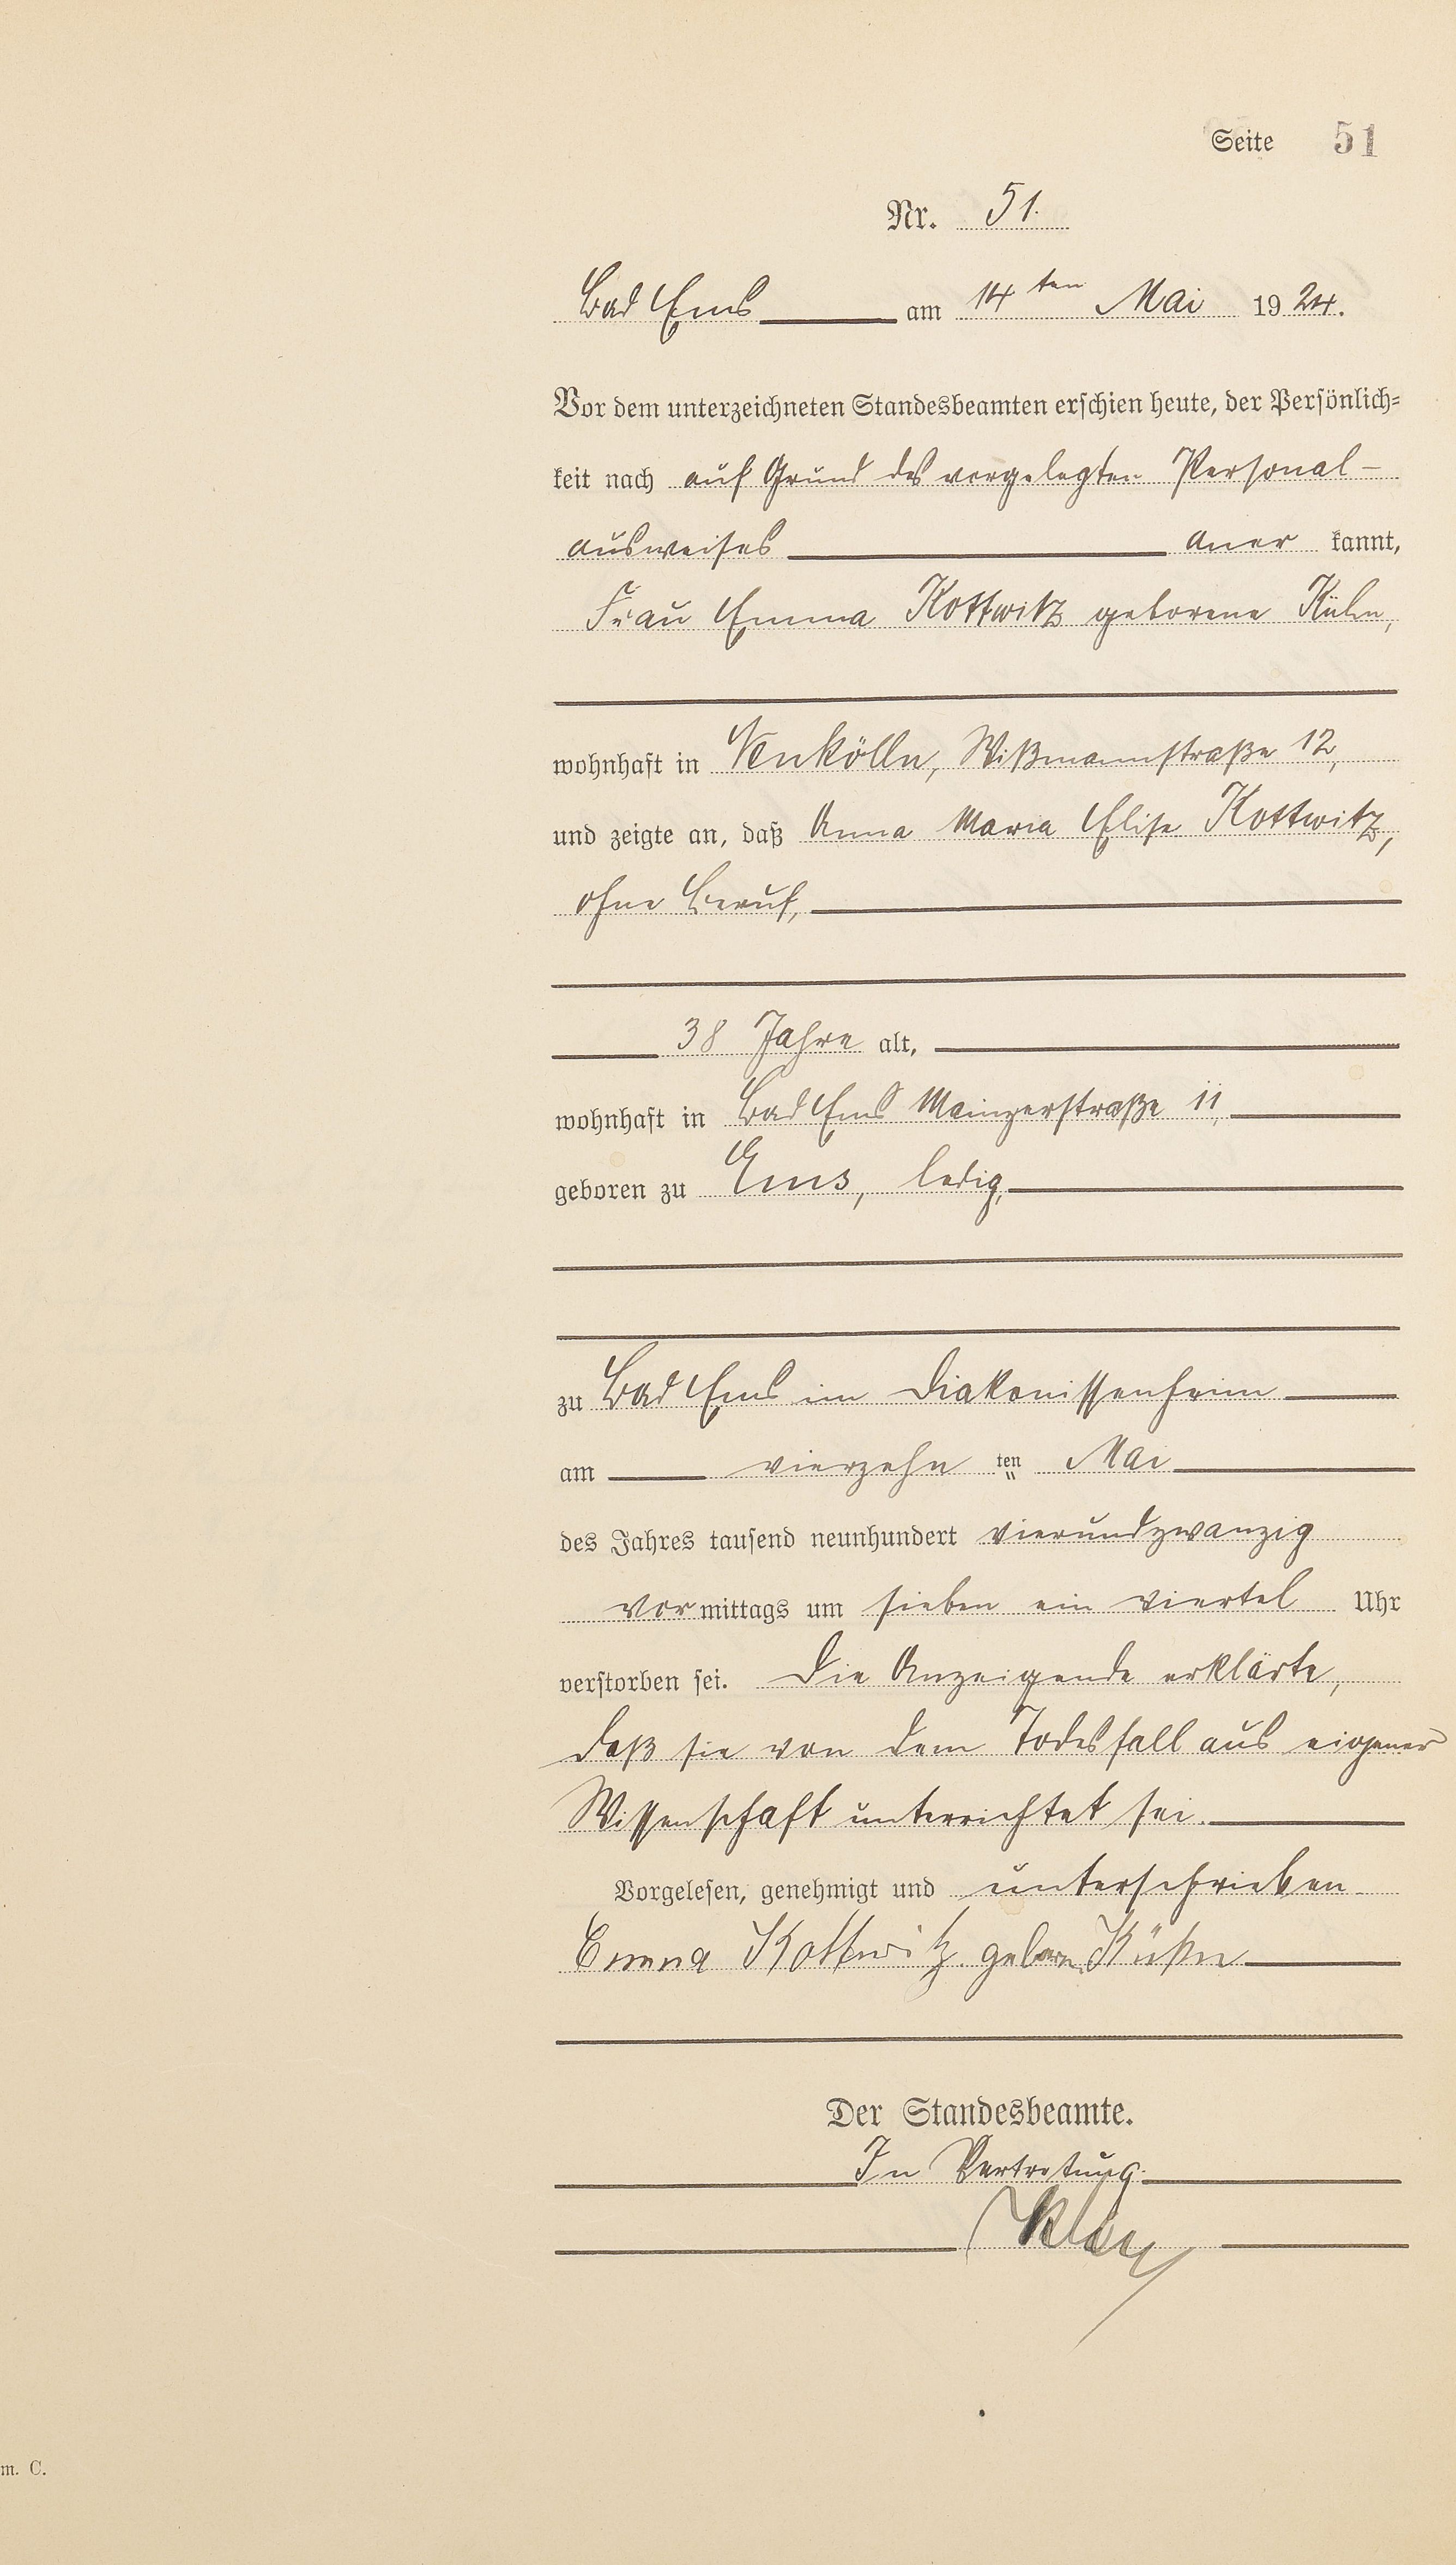 Seite 51
Nr. 51.
Bad Ems am 14ten Mai 1924.
Vor dem unterzeichneten Standesbeamten erschien heute, der Persönlich=
keit nach auf Grund des vorgelegten Personal-
ausweises anerkannt,
Frau Emma Kottwitz geborene Kühn,
wohnhaft in Neukölln, Wißmannstraße 12,
und zeigte an, daß Anna Maria Elise Kottwitz,
ohne Beruf,
38 Jahre alt,
wohnhaft in Bad Ems Mainzerstraße 11,
geboren zu Ems, ledig,
zu Bad Ems im Diakonissenheim
am vierzehn ten Mai
des Jahres tausend neunhundert vierundzwanzig
vormittags um sieben ein viertel Uhr
verstorben sei. Die Anzeigende erklärte,
daß sie von dem Todesfall aus eigener
Wissenschaft unterrichtet sei.
Vorgelesen, genehmigt und unterschrieben
Emma Kottwitz geborne Kühn
Der Standesbeamte.
In Vertretung.
m. C.